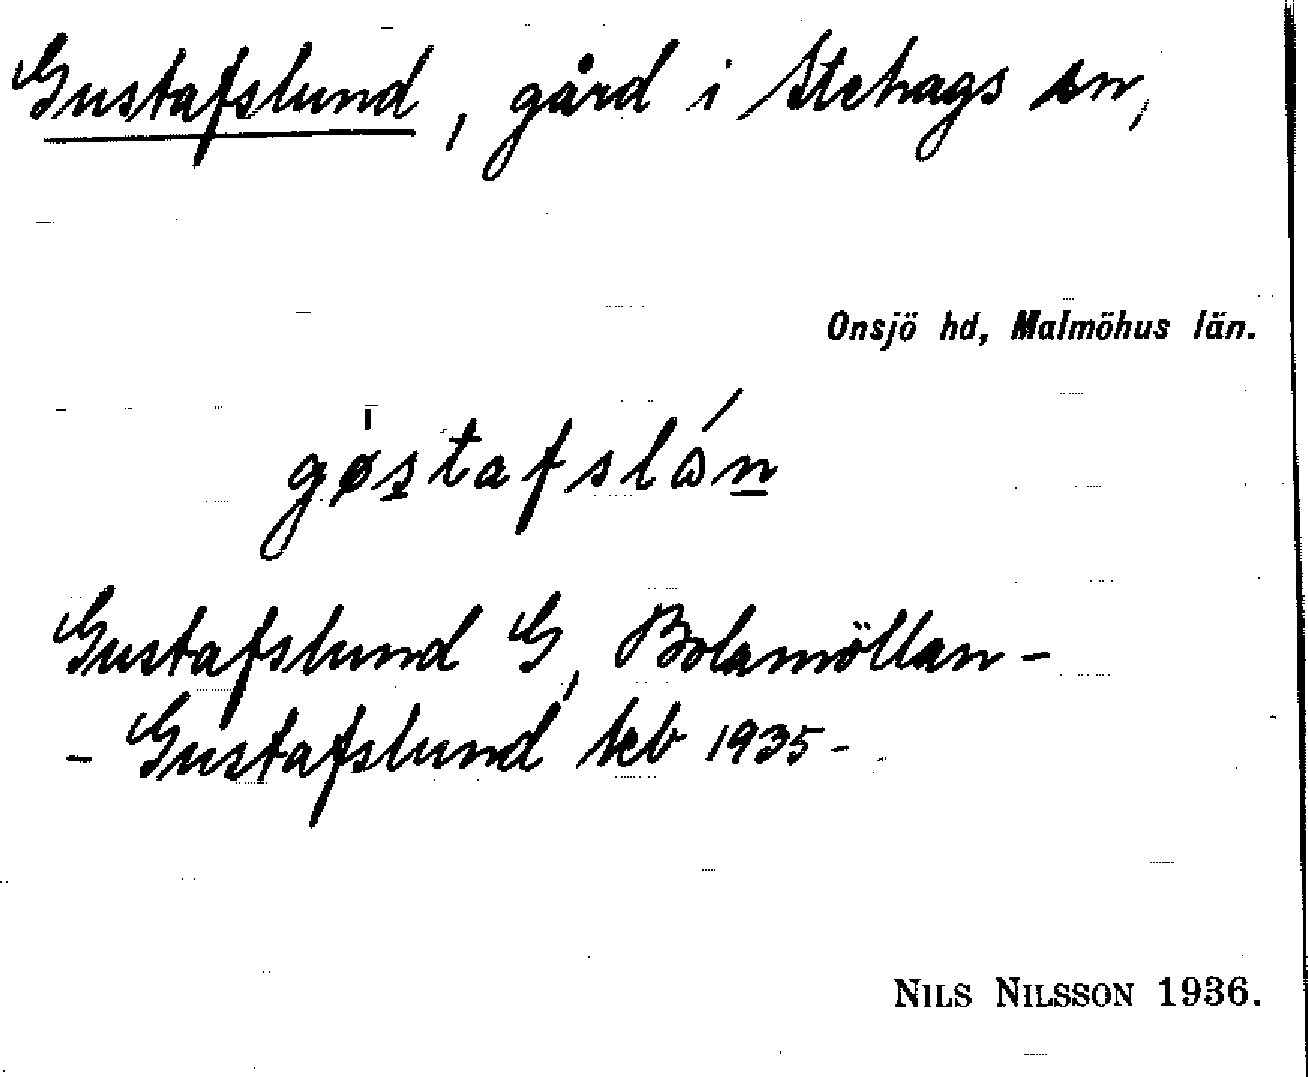 Gustafslund, gård i Stehags sn,
Onsjö hd, Malmöhus län.
gøstafslán
Gustafslund G, Bolamöllan -
- Gustafslund teb 1935 -
NILS NILSSON 1936.